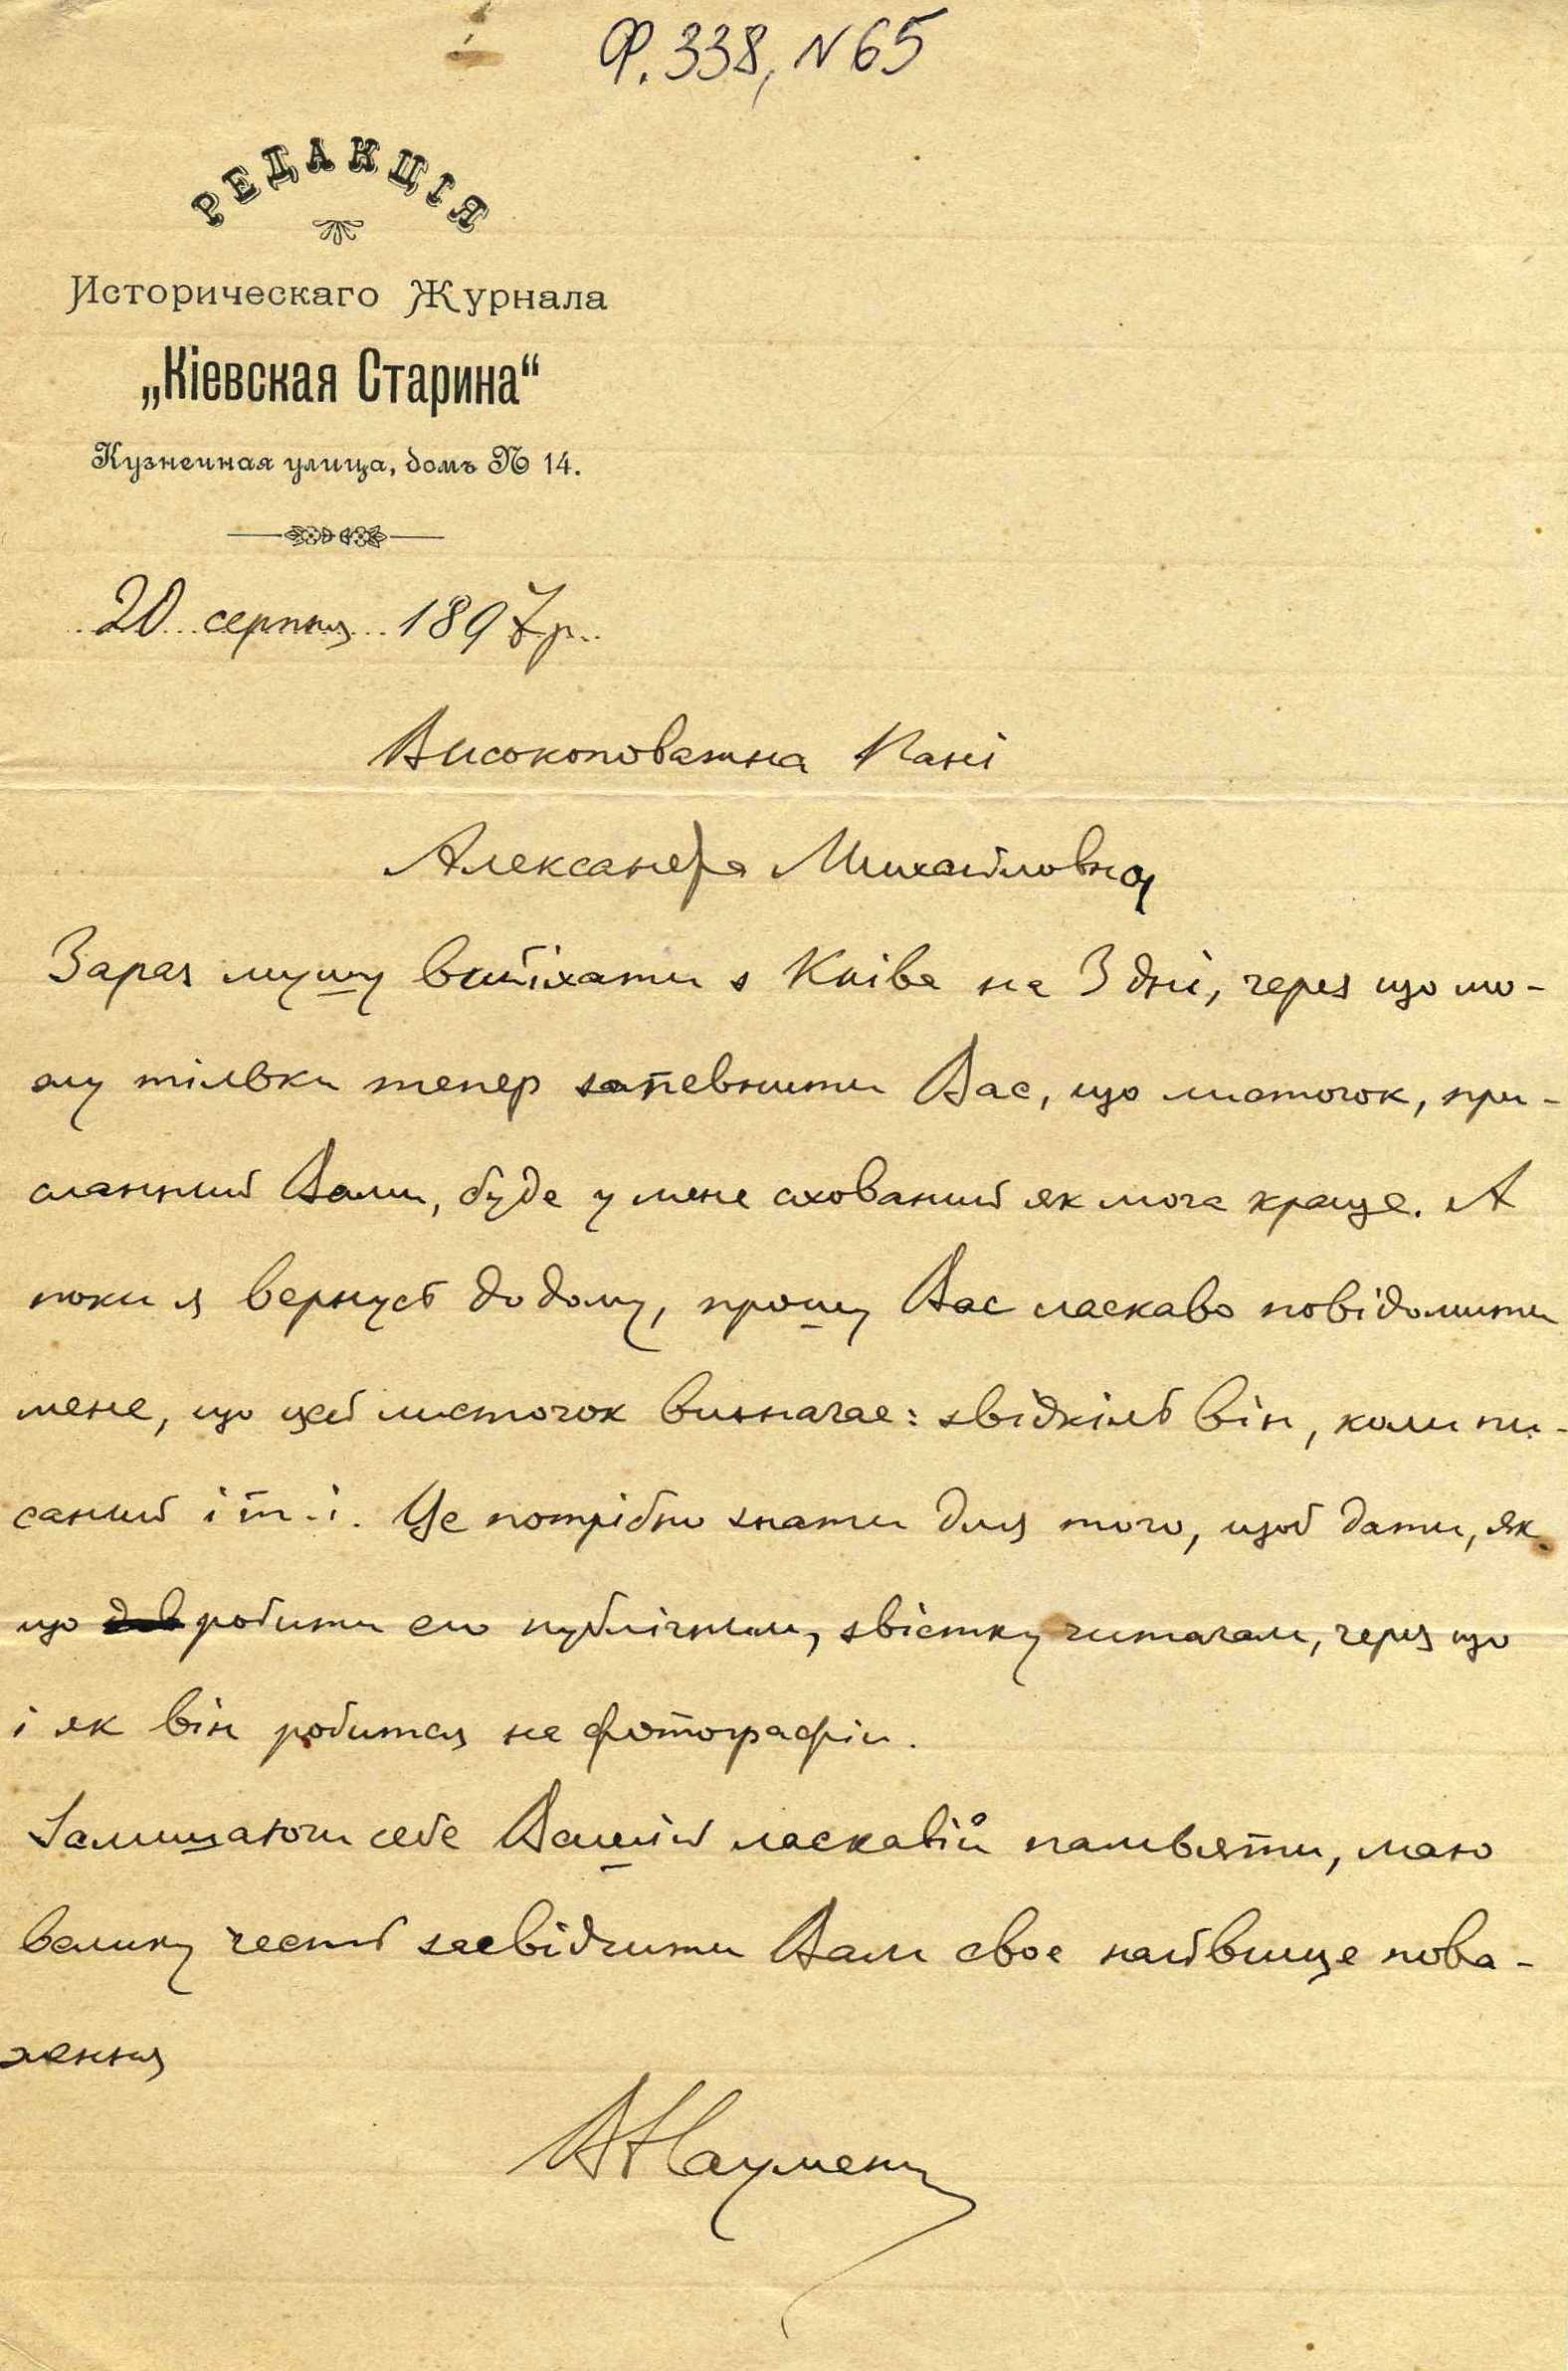 Ф. 338, N 65
РЕДАКЦІЯ
Историческаго Журнала
„Кіевская Старина“
Кузнечная улица, домъ № 14.
20 серпня 1897 р.
Високоповажна Пані
Александра Михайловна
Зараз мушу виїхати з Киіва на 3 дні, через що мо-
жу тільки тепер запевнити Вас, що листочок, при-
сланний Вами, буде у мене схований як мога краще. А
поки я вернусь до дому, прошу Вас ласкаво повідомити
мене, що цей листочок визначае: звідкіль він, коли пи-
саний і т. і. Це потрібно знати для того, щоб дати, як
що робити ею публічним, звістку читачам, через що
і як він робится на фотографіи.
Залишаючи себе Вашій ласкавій памьяти, маю
велику честь засвідчити Вам свое найвище пова-
ження
В Науменко